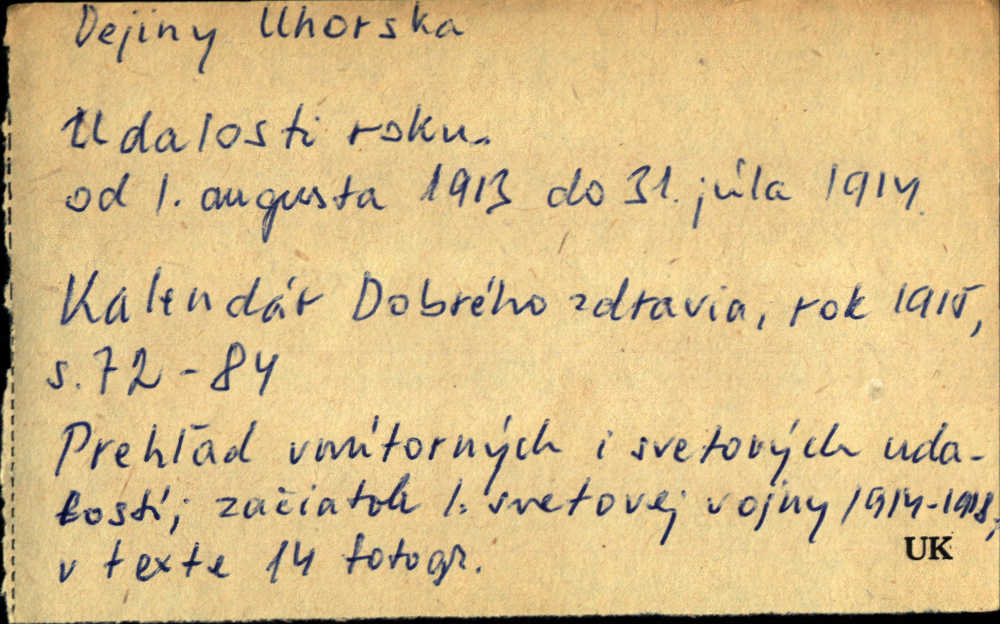 Dejiny Uhorska
Udalosti roku.
od 1. augusta 1913 do 31. júla 1914.
Kalendár Dobrého zdravia, rok 1915,
s. 72 - 84
Prehľad vnútorných i svetových uda-
lostí; začiatok 1. svetovej vojny 1914-1918,
v texte 14 fotogr.
UK